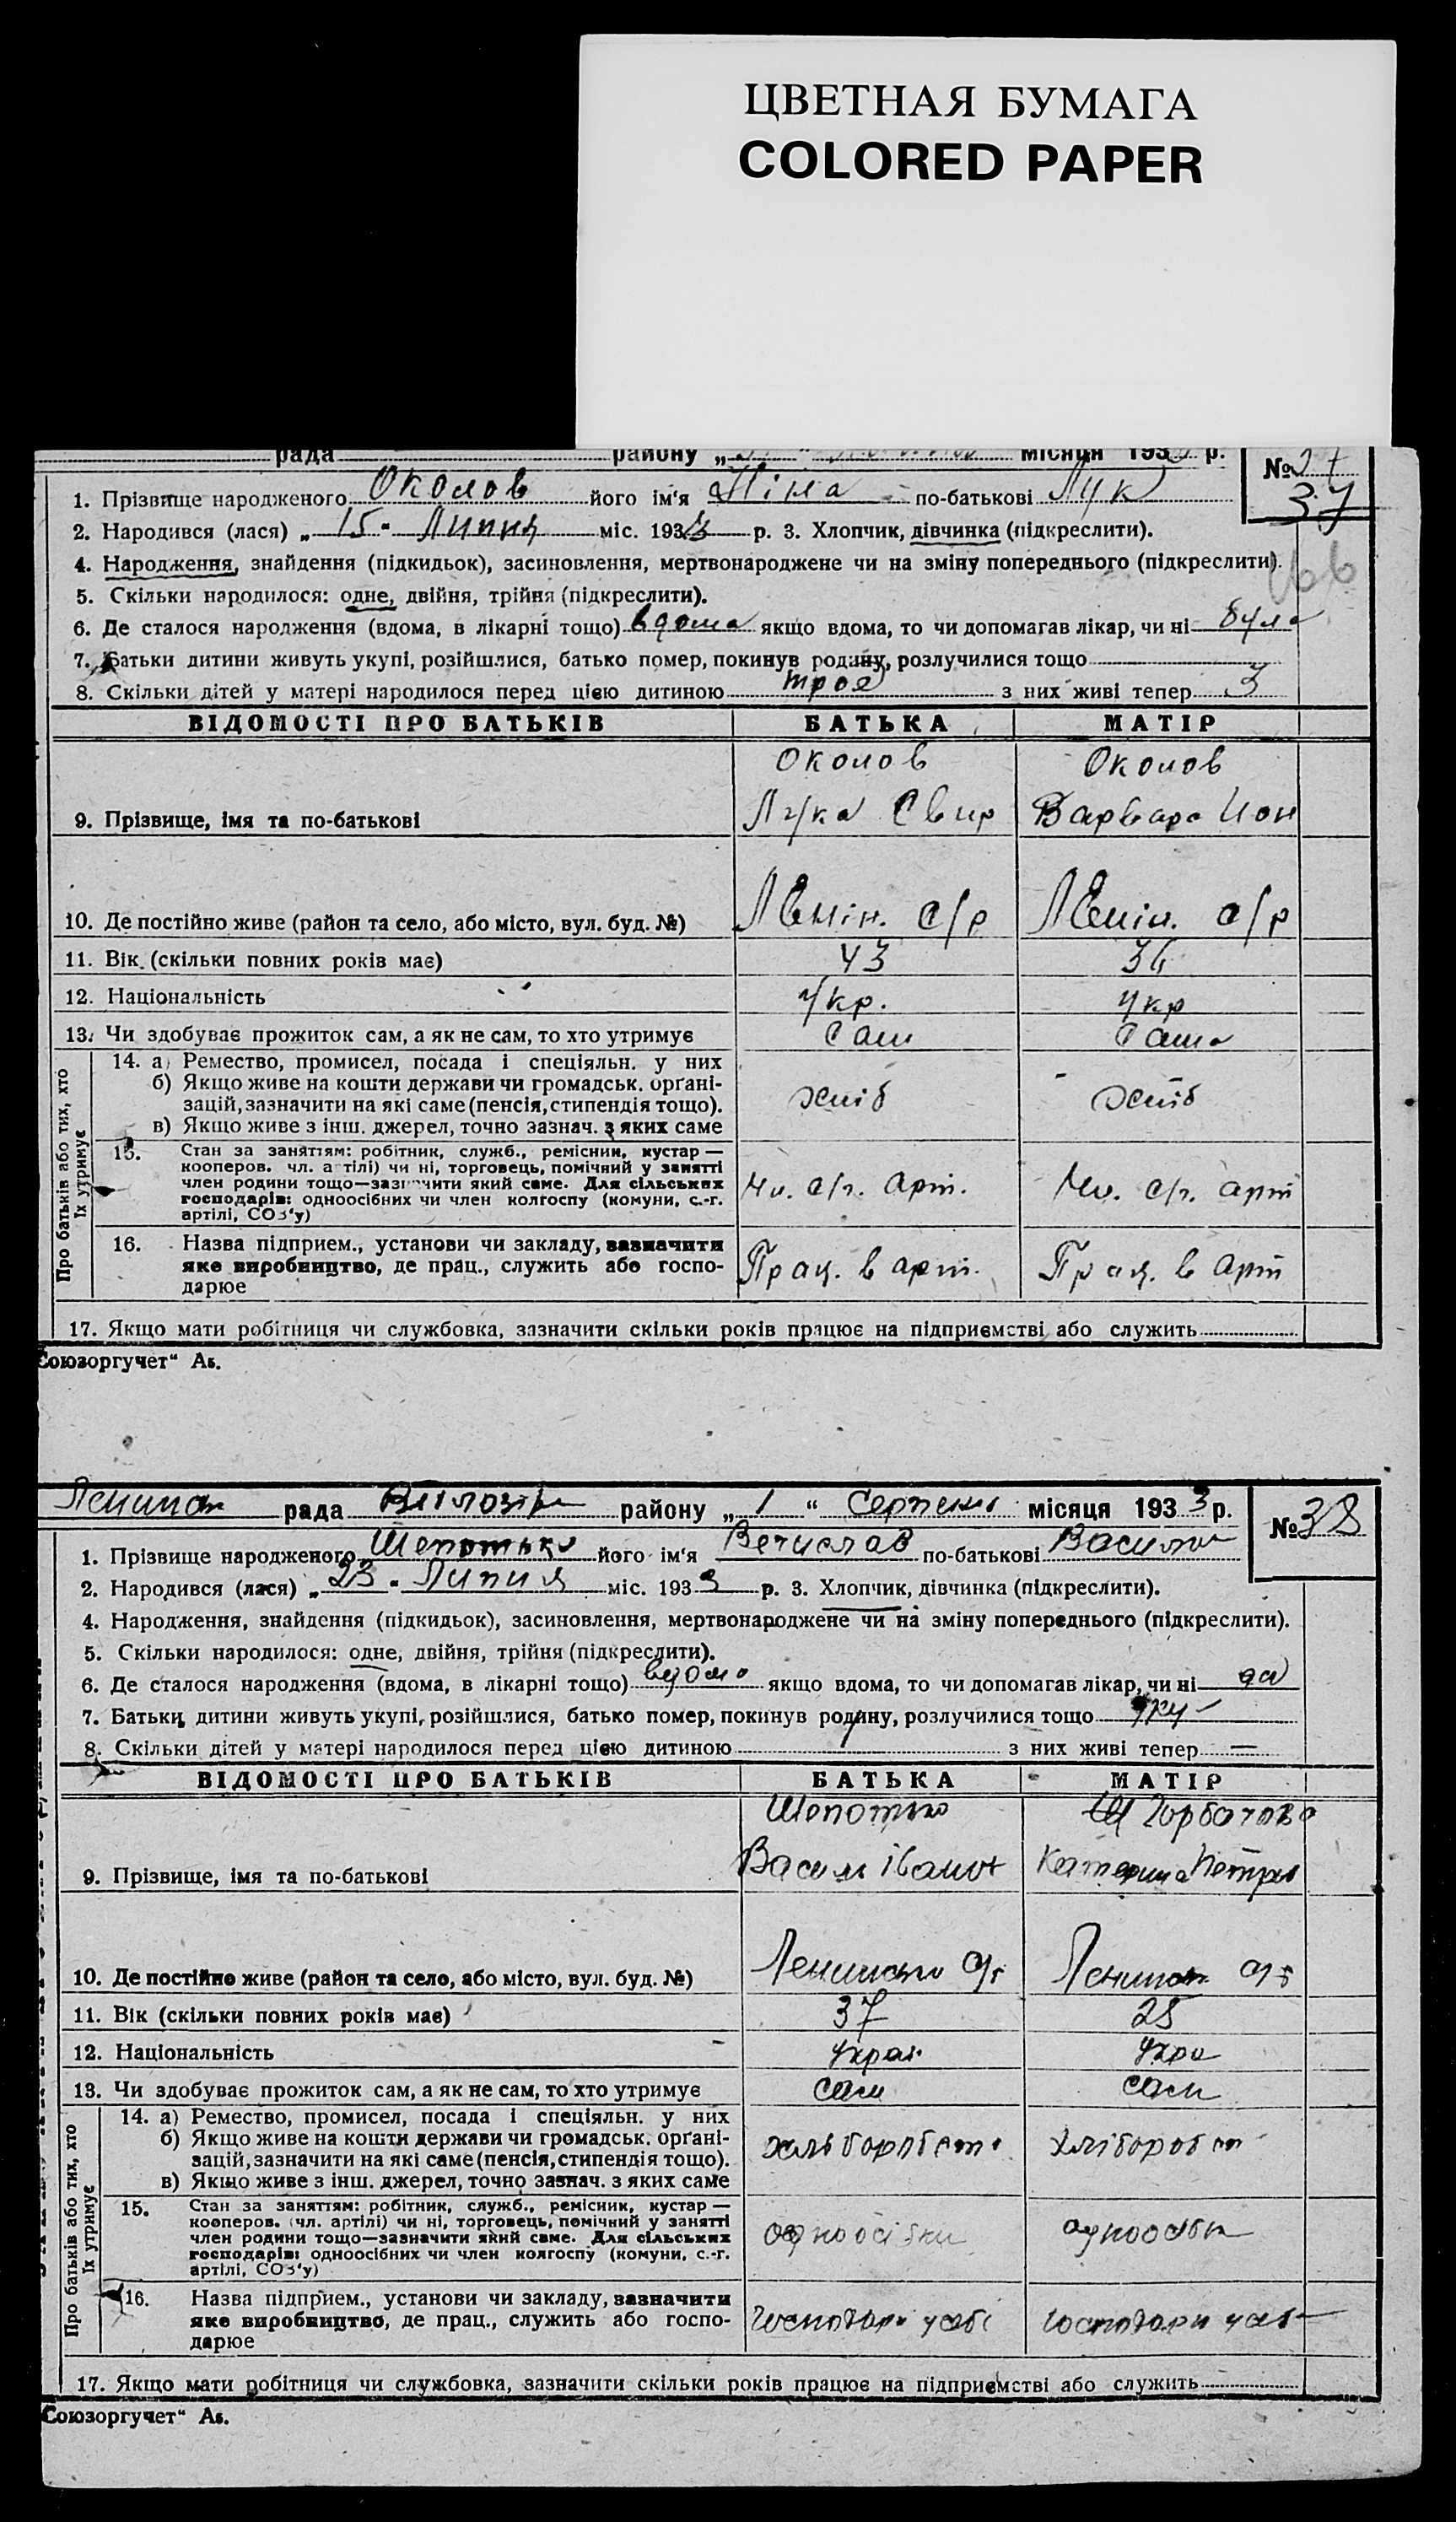 ЦВЕТНАЯ БУМАГА
COLORED PAPER
рада району „ “ місяця 193 р. № 37
1. Прізвище народженого Околов його ім'я Ніна по-батькові Лук
2. Народився (лася) „15“ Липня міс. 1933 р. 3. Хлопчик, дівчинка (підкреслити).
4. Народження, знайдення (підкидьок), засиновлення, мертвонароджене чи на зміну попереднього (підкреслити).
5. Скільки народилося: одне, двійня, трійня (підкреслити).
6. Де сталося народження (вдома, в лікарні тощо) вдома якщо вдома, то чи допомагав лікар, чи ні була
7. Батьки дитини живуть укупі, розійшлися, батько помер, покинув родину, розлучилися тощо
8. Скільки дітей у матері народилося перед цією дитиною троє з них живі тепер 3
ВІДОМОСТІ ПРО БАТЬКІВ БАТЬКА МАТІР
Околов Околов
9. Прізвище, імя та по-батькові Лука Свир Варвара Ион
10. Де постійно живе (район та село, або місто, вул. буд. №) Ленін. с/р Ленін. с/р
11. Вік (скільки повних років має) 43
12. Національність Укр. Укр
13. Чи здобуває прожиток сам, а як не сам, то хто утримує Сам Сама
Про батьків або тих, хто їх утримує
14. а) Ремество, промисел, посада і спеціяльн. у них
б) Якщо живе на кошти держави чи громадськ. орґані-
зацій, зазначити на які саме (пенсія, стипендія тощо). хліб хліб
в) Якщо живе з інш. джерел, точно зазнач. з яких саме
15. Стан за заняттям: робітник, служб., ремісник, кустар —
кооперов. чл. артілі) чи ні, торговець, помічний у занятті
член родини тощо—зазначити який саме. Для сільських Чл. с/г. арт. Чл. с/г. арт
господарів: одноосібних чи член колгоспу (комуни, с.-г.
артілі, СОЗ'у)
16. Назва підприєм., установи чи закладу, зазначити
яке виробництво, де прац., служить або госпо- Прац. в арт. Прац. в арт
дарює
17. Якщо мати робітниця чи службовка, зазначити скільки років працює на підприємстві або служить
Союзоргучет“ Аб.
Ленинськ рада району „1“ Серпень місяця 1933 р. № 38
1. Прізвище народженого Шопотько його ім'я Вечислав по-батькові
2. Народився (лася) „23“ Липня міс. 1933 р. 3. Хлопчик, дівчинка (підкреслити).
4. Народження, знайдення (підкидьок), засиновлення, мертвонароджене чи на зміну попереднього (підкреслити).
5. Скільки народилося: одне, двійня, трійня (підкреслити).
6. Де сталося народження (вдома, в лікарні тощо) вдома якщо вдома, то чи допомагав лікар, чи ні да
7. Батьки дитини живуть укупі, розійшлися, батько помер, покинув родину, розлучилися тощо уку
8. Скільки дітей у матері народилося перед цією дитиною з них живі тепер —
ВІДОМОСТІ ПРО БАТЬКІВ БАТЬКА МАТІР
Шопотько Горбачова
9. Прізвище, імя та по-батькові Василь Іванов Катерина Петров
10. Де постійно живе (район та село, або місто, вул. буд. №) Ленинсько Ленинськ
11. Вік (скільки повних років має) 37 25
12. Національність Украї Укра
13. Чи здобуває прожиток сам, а як не сам, то хто утримує сам сам
Про батьків або тих, хто їх утримує
14. а) Ремество, промисел, посада і спеціяльн. у них
б) Якщо живе на кошти держави чи громадськ. орґані-
зацій, зазначити на які саме (пенсія, стипендія тощо). хліборобст хліборобст
в) Якщо живе з інш. джерел, точно зазнач. з яких саме
15. Стан за заняттям: робітник, служб., ремісник, кустар —
кооперов. (чл. артілі) чи ні, торговець, помічний у занятті
член родини тощо—зазначити який саме. Для сільських одноосібни одноосібн
господарів: одноосібних чи член колгоспу (комуни, с.-г.
артілі, СОЗ'у)
16. Назва підприєм., установи чи закладу, зазначити
яке виробництво, де прац., служить або госпо- Господари у себі господари у себ
дарює
17. Якщо мати робітниця чи службовка, зазначити скільки років працює на підприємстві або служить
Союзоргучет“ Аб.